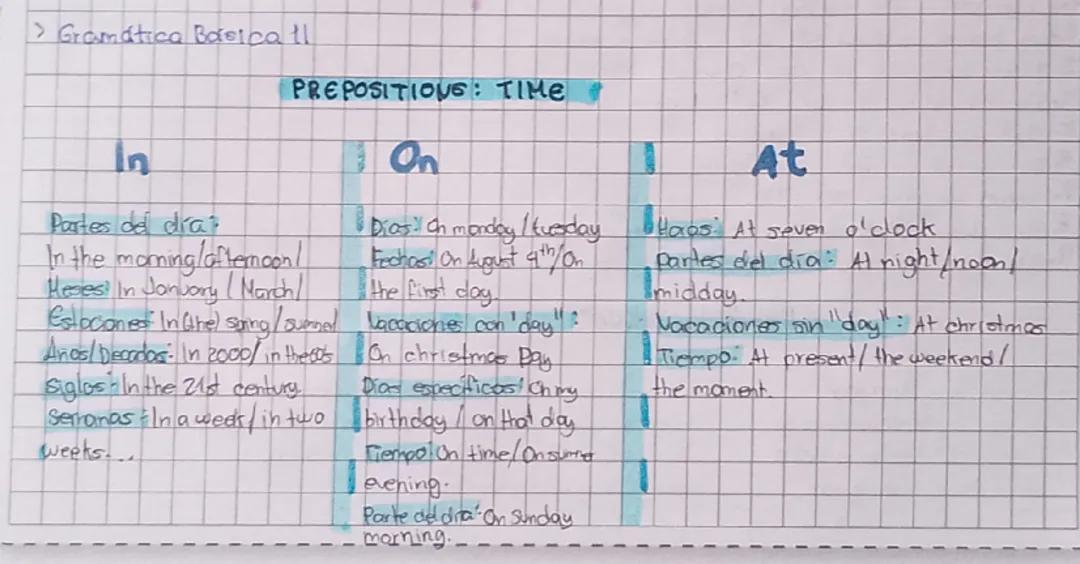 > Gramática Básica 11
PREPOSITIONS: TIME
In
Partes del día:
In the morning/afternoon/
Meses: In January / March/
Estaciones: In (the) spring/summer
Años/Decadas: In 2000/ in the
Siglos: In the 21st century
Semanas: In a week/ in two
weeks...
On
Días: On monday / tuesday
Fechas: On August 4th/On
the first day.
Vacaciones con "day":
On christmas Day
Días específicos: On my
birthday / on that day
Tiempo: On time/On summer
evening.
Parte del día: On Sunday
morning.
At
Horas: At seven o'clock
partes del día: At night/noon/
midday.
Vacaciones sin "day": At christmas
Tiempo: At present/ the weekend/
the moment.